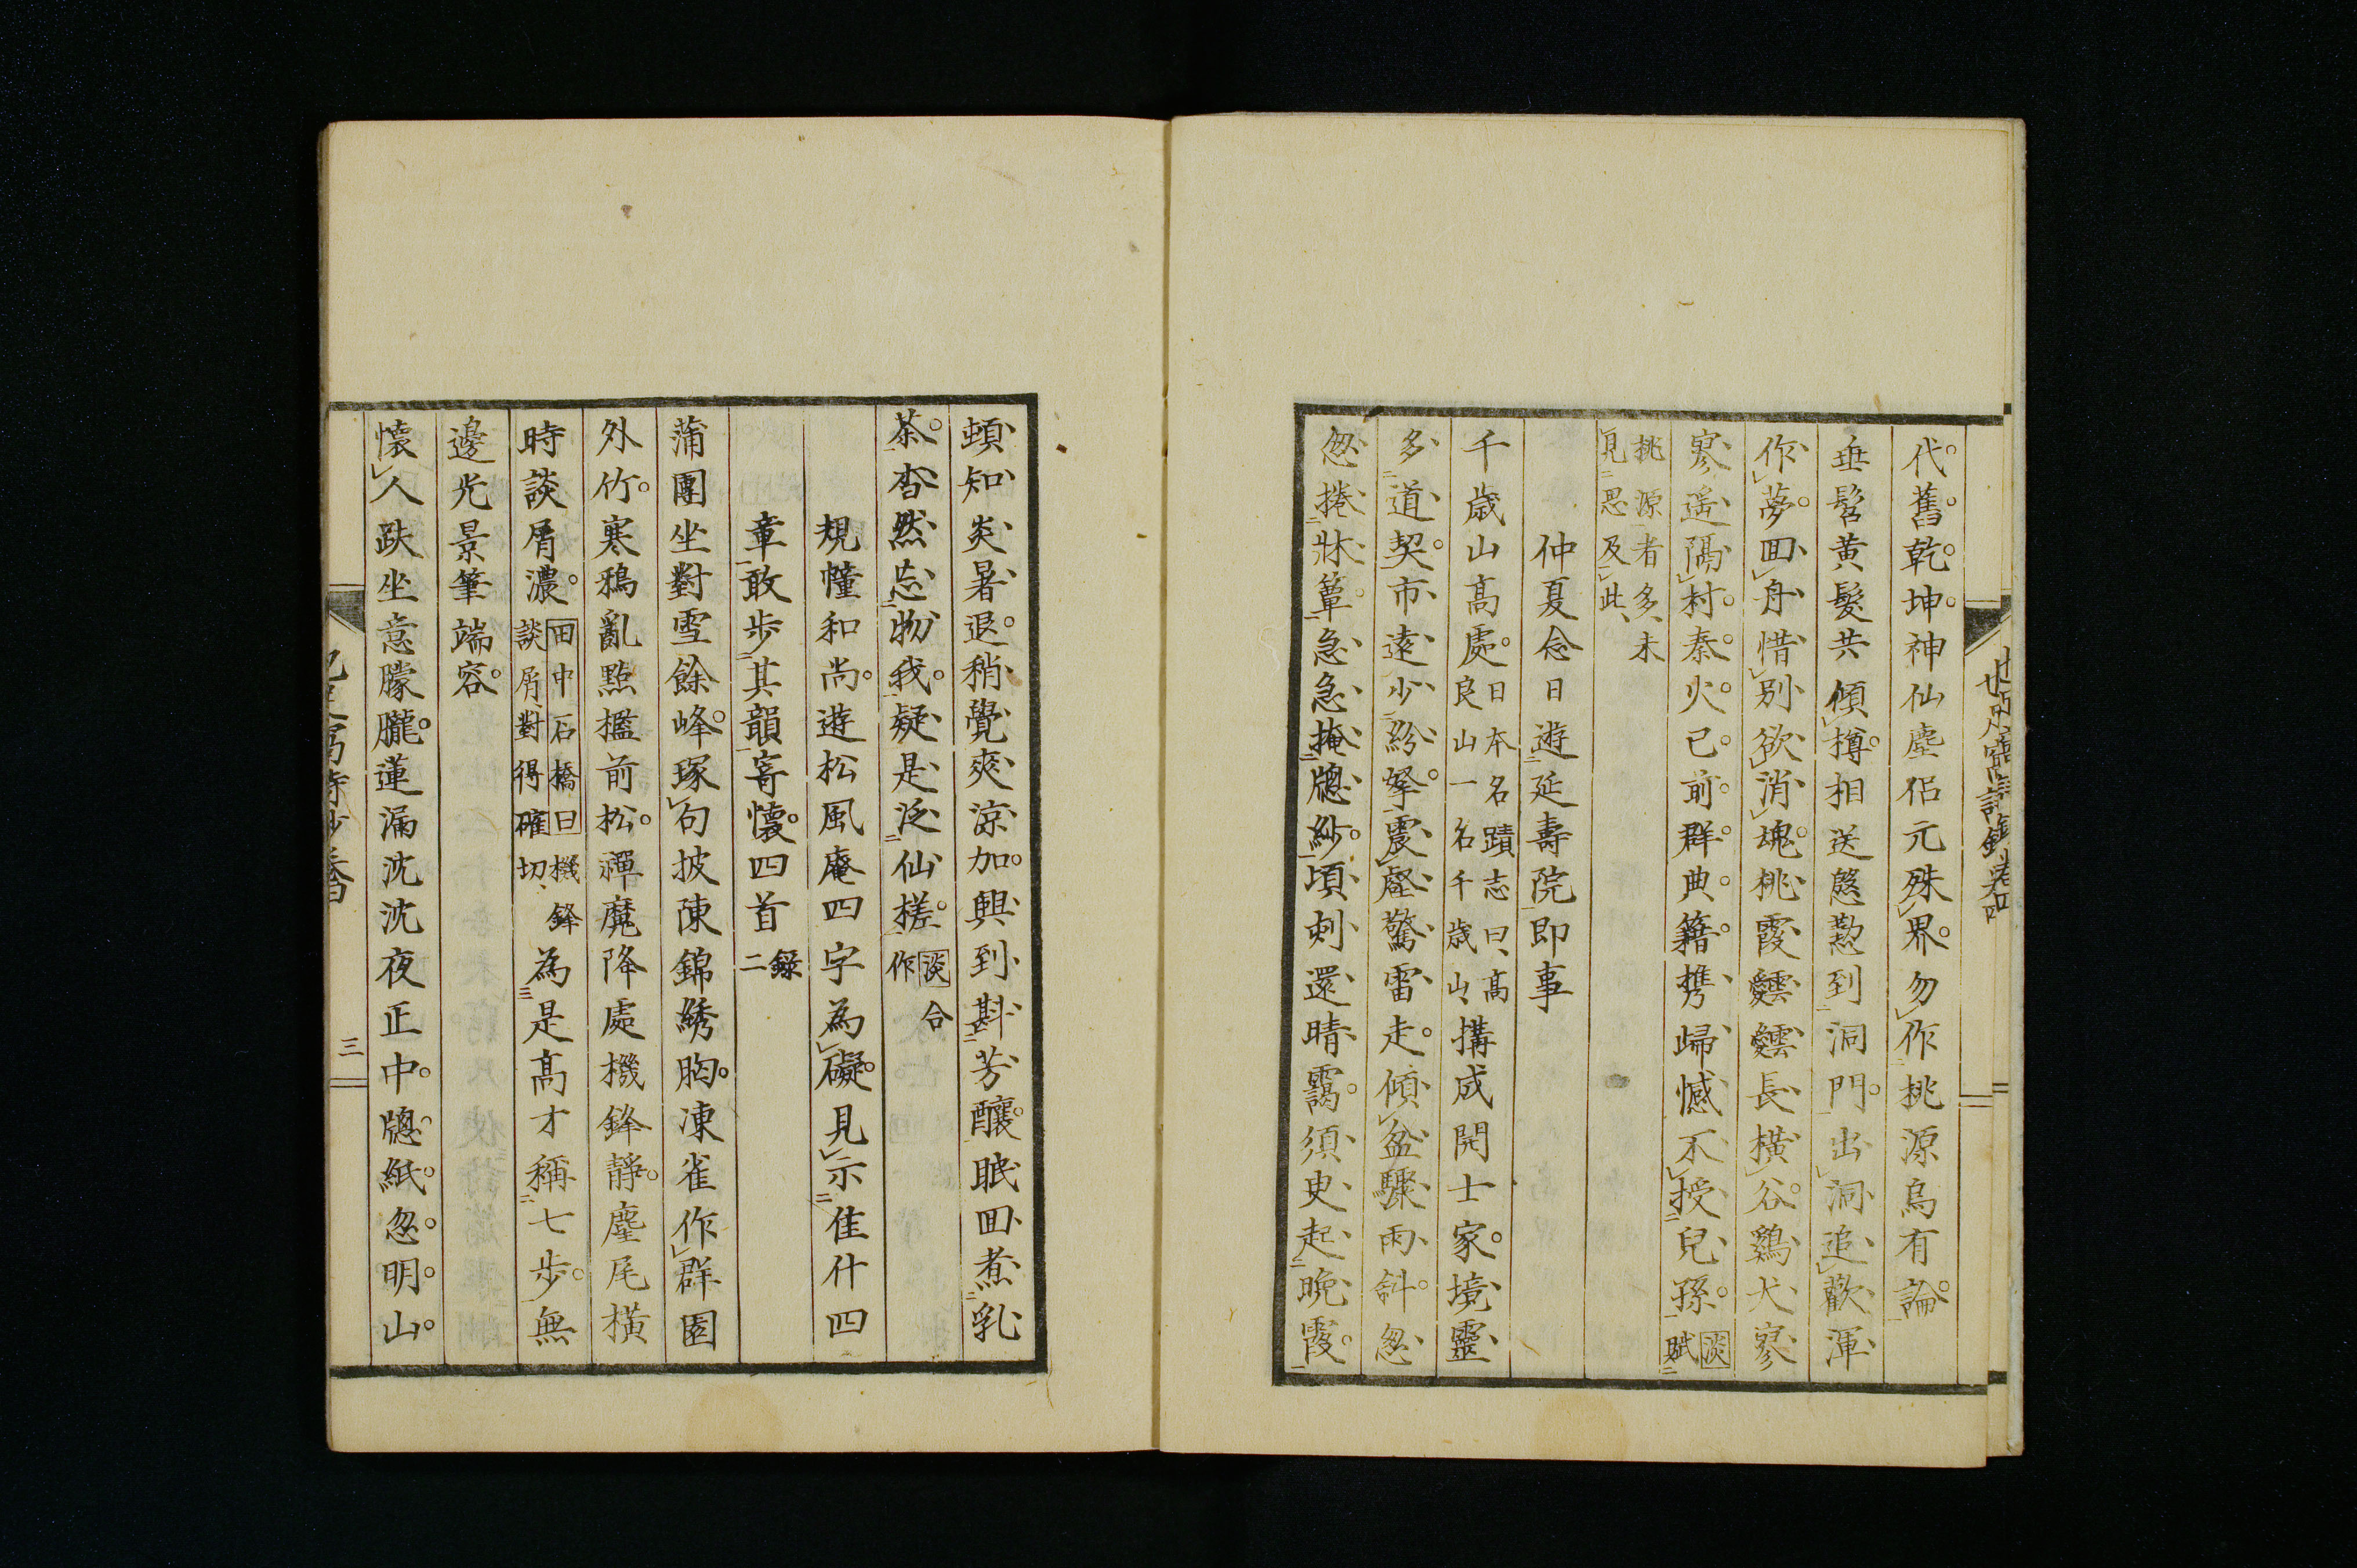 代舊乾坤神仙塵侶元殊界勿作桃源烏有論
垂髫黃髮共傾樽相送慇懃到洞門出洞追歡渾
作夢回舟惜別欲消魂桃霞靉靆長橫谷鷄犬寥
寥遥隔村秦火已前群典籍携歸憾不授兒孫淡賦
桃源者多未
見思及此
仲夏念日遊延壽院即事
千歳山高處日本名蹟志曰高
良山一名千歳山搆成開士家境靈
多道契市遠少紛拏震壑驚雷走傾盆驟雨斜忽
忽捲牀簟急急掩牕紗頃刻還晴靄須臾起晩霞
頓知炎暑退稍覺爽涼加興到斟芳釀眠回煮乳
茶杳然忘物我疑是泛仙槎淡合
作
規幢和尚遊松風庵四字為礙見示佳什四
章敢步其韻寄懷四首錄
二
蒲團坐對雪餘峰琢句披陳錦綉胸凍雀作群園
外竹寒鴉亂點檻前松禪魔降處機鋒靜麈尾橫
時談屑濃田中石橋曰機鋒
談屑對得確切為是高才稱七步無
邊光景筆端容
懷人趺坐意朦朧蓮漏沈沈夜正中牕紙忽明山
三